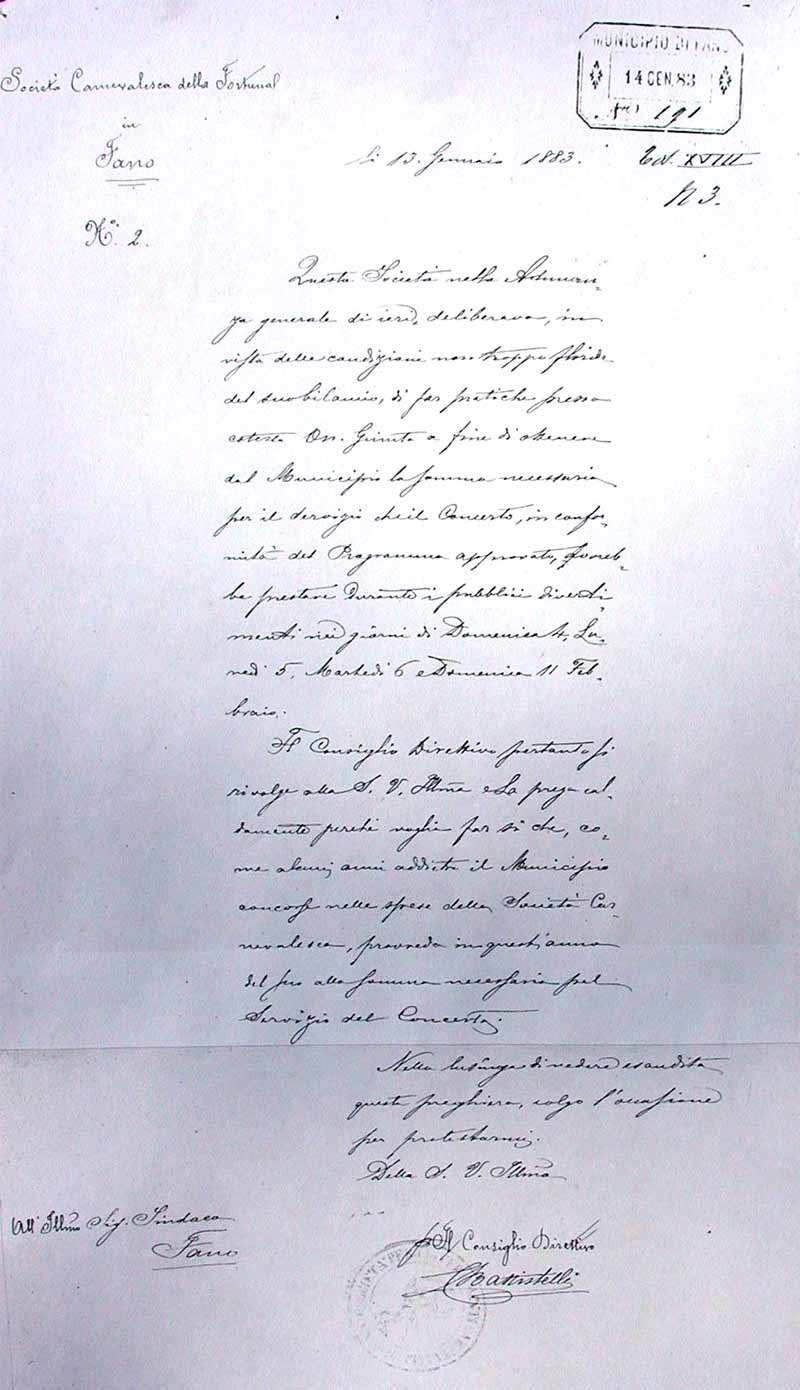 MUNICIPIO DI FANO
14 GEN. 83
191
Società Carnevalesca della Fortuna
in
Fano
li 13. Gennaio 1883.
Tit. XVIII
N 3.
N.° 2.
Questa Società nella Adunan-
za generale di ieri, deliberava, in
vista delle condizioni non troppo floride
del suo bilancio, di far pratiche presso
cotesta On. Giunta a fine di ottenere
dal Municipio la somma necessaria
per il servizio che il Concerto, in confor-
mità del Programma approvato, dovreb-
be prestare durante i pubblici diverti-
menti nei giorni di Domenica 4, Lu-
nedì 5, Martedì 6 e Domenica 11 Feb-
braio.
Il Consiglio Direttivo pertanto si
rivolge alla S. V. Illma e La prega cal-
damente perché voglia far sì che, co-
me alcuni anni addietro il Municipio
concorse nelle spese della Società Car-
nevalesca, provveda in quest'anno
del suo alla somma necessaria pel
Servizio del Concerto.
Nella lusinga di vedere esaudita
questa preghiera, colgo l'occasione
per protestarmi.
Della S. V. Illma
All' Illmo Sig. Sindaco
Fano
Il Consiglio Direttivo
Battistelli